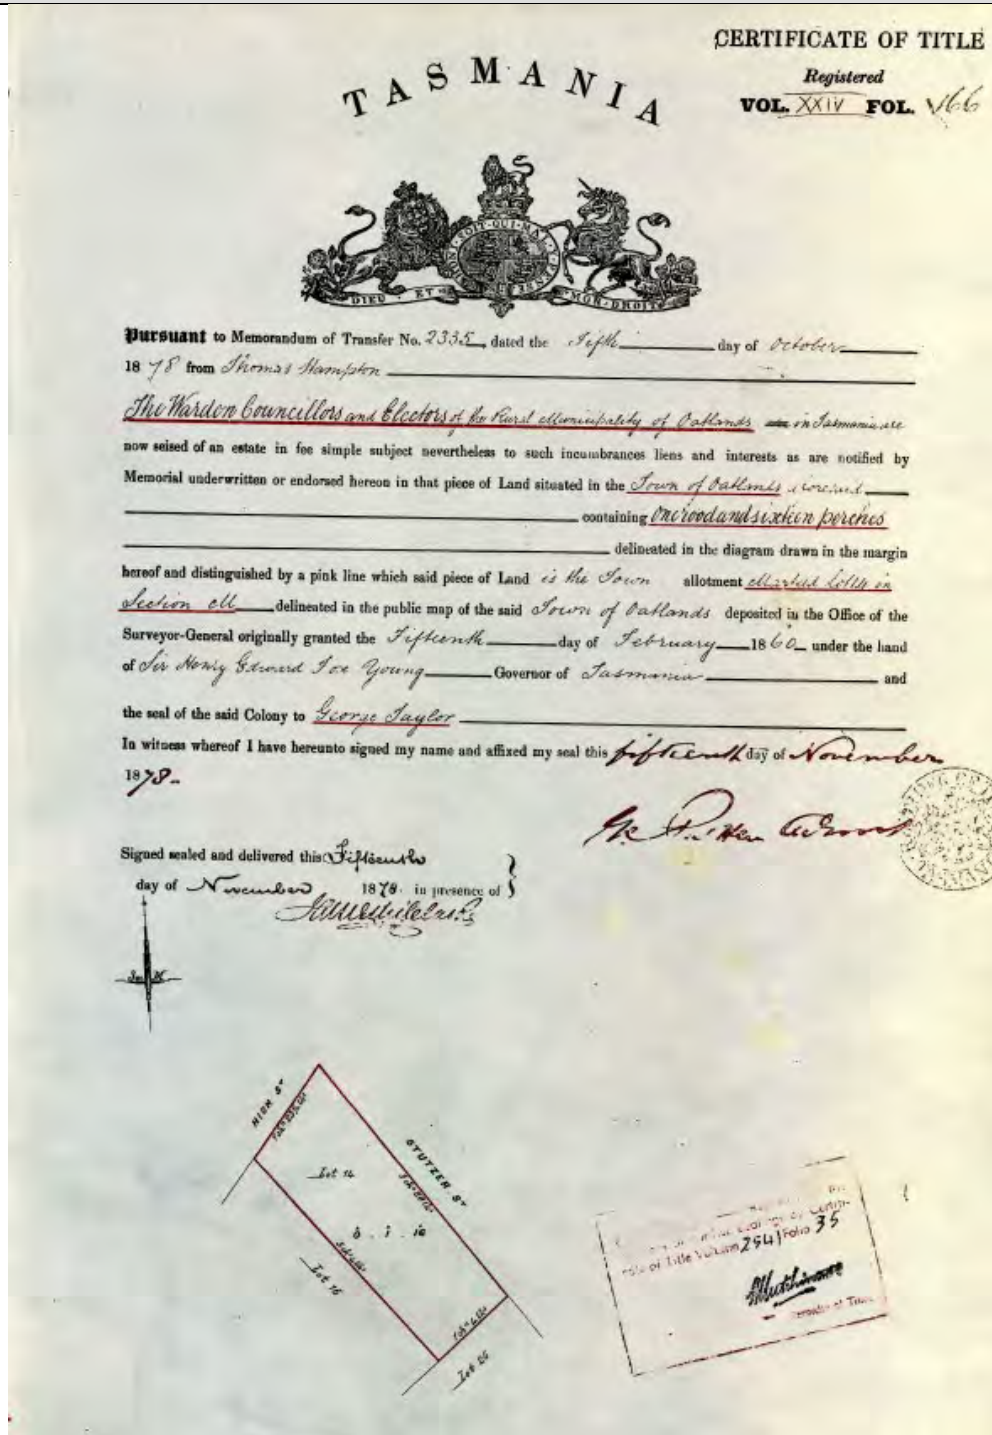 CERTIFICATE OF TITLE
Registered
VOL. XXIV FOL. 166
TASMANIA
HONI SOIT QUI MAL Y PENSE
DIEU ET MON DROIT
Pursuant to Memorandum of Transfer No. 2335, dated the Fifth day of October
1878 from Thomas Hampton
The Warden Councillors and Electors of the Rural Municipality of Oatlands in Tasmania are
now seised of an estate in fee simple subject nevertheless to such incumbrances liens and interests as are notified by
Memorial underwritten or endorsed hereon in that piece of Land situated in the Town of Oatlands
containing One rood and sixteen perches
delineated in the diagram drawn in the margin
hereof and distinguished by a pink line which said piece of Land is the Town allotment Marked in
Section M delineated in the public map of the said Town of Oatlands deposited in the Office of the
Surveyor-General originally granted the Fifteenth day of February 1860 under the hand
of Sir Henry Edward Fox Young Governor of Tasmania and
the seal of the said Colony to George Taylor
In witness whereof I have hereunto signed my name and affixed my seal this fifteenth day of November
1878.
Signed sealed and delivered this Fifteenth
day of November 1878. in presence of
HIGH ST
STUTZER ST
Lot 14
Lot 16
Lot
of Title Volume 2541 Folio 35
of Titles